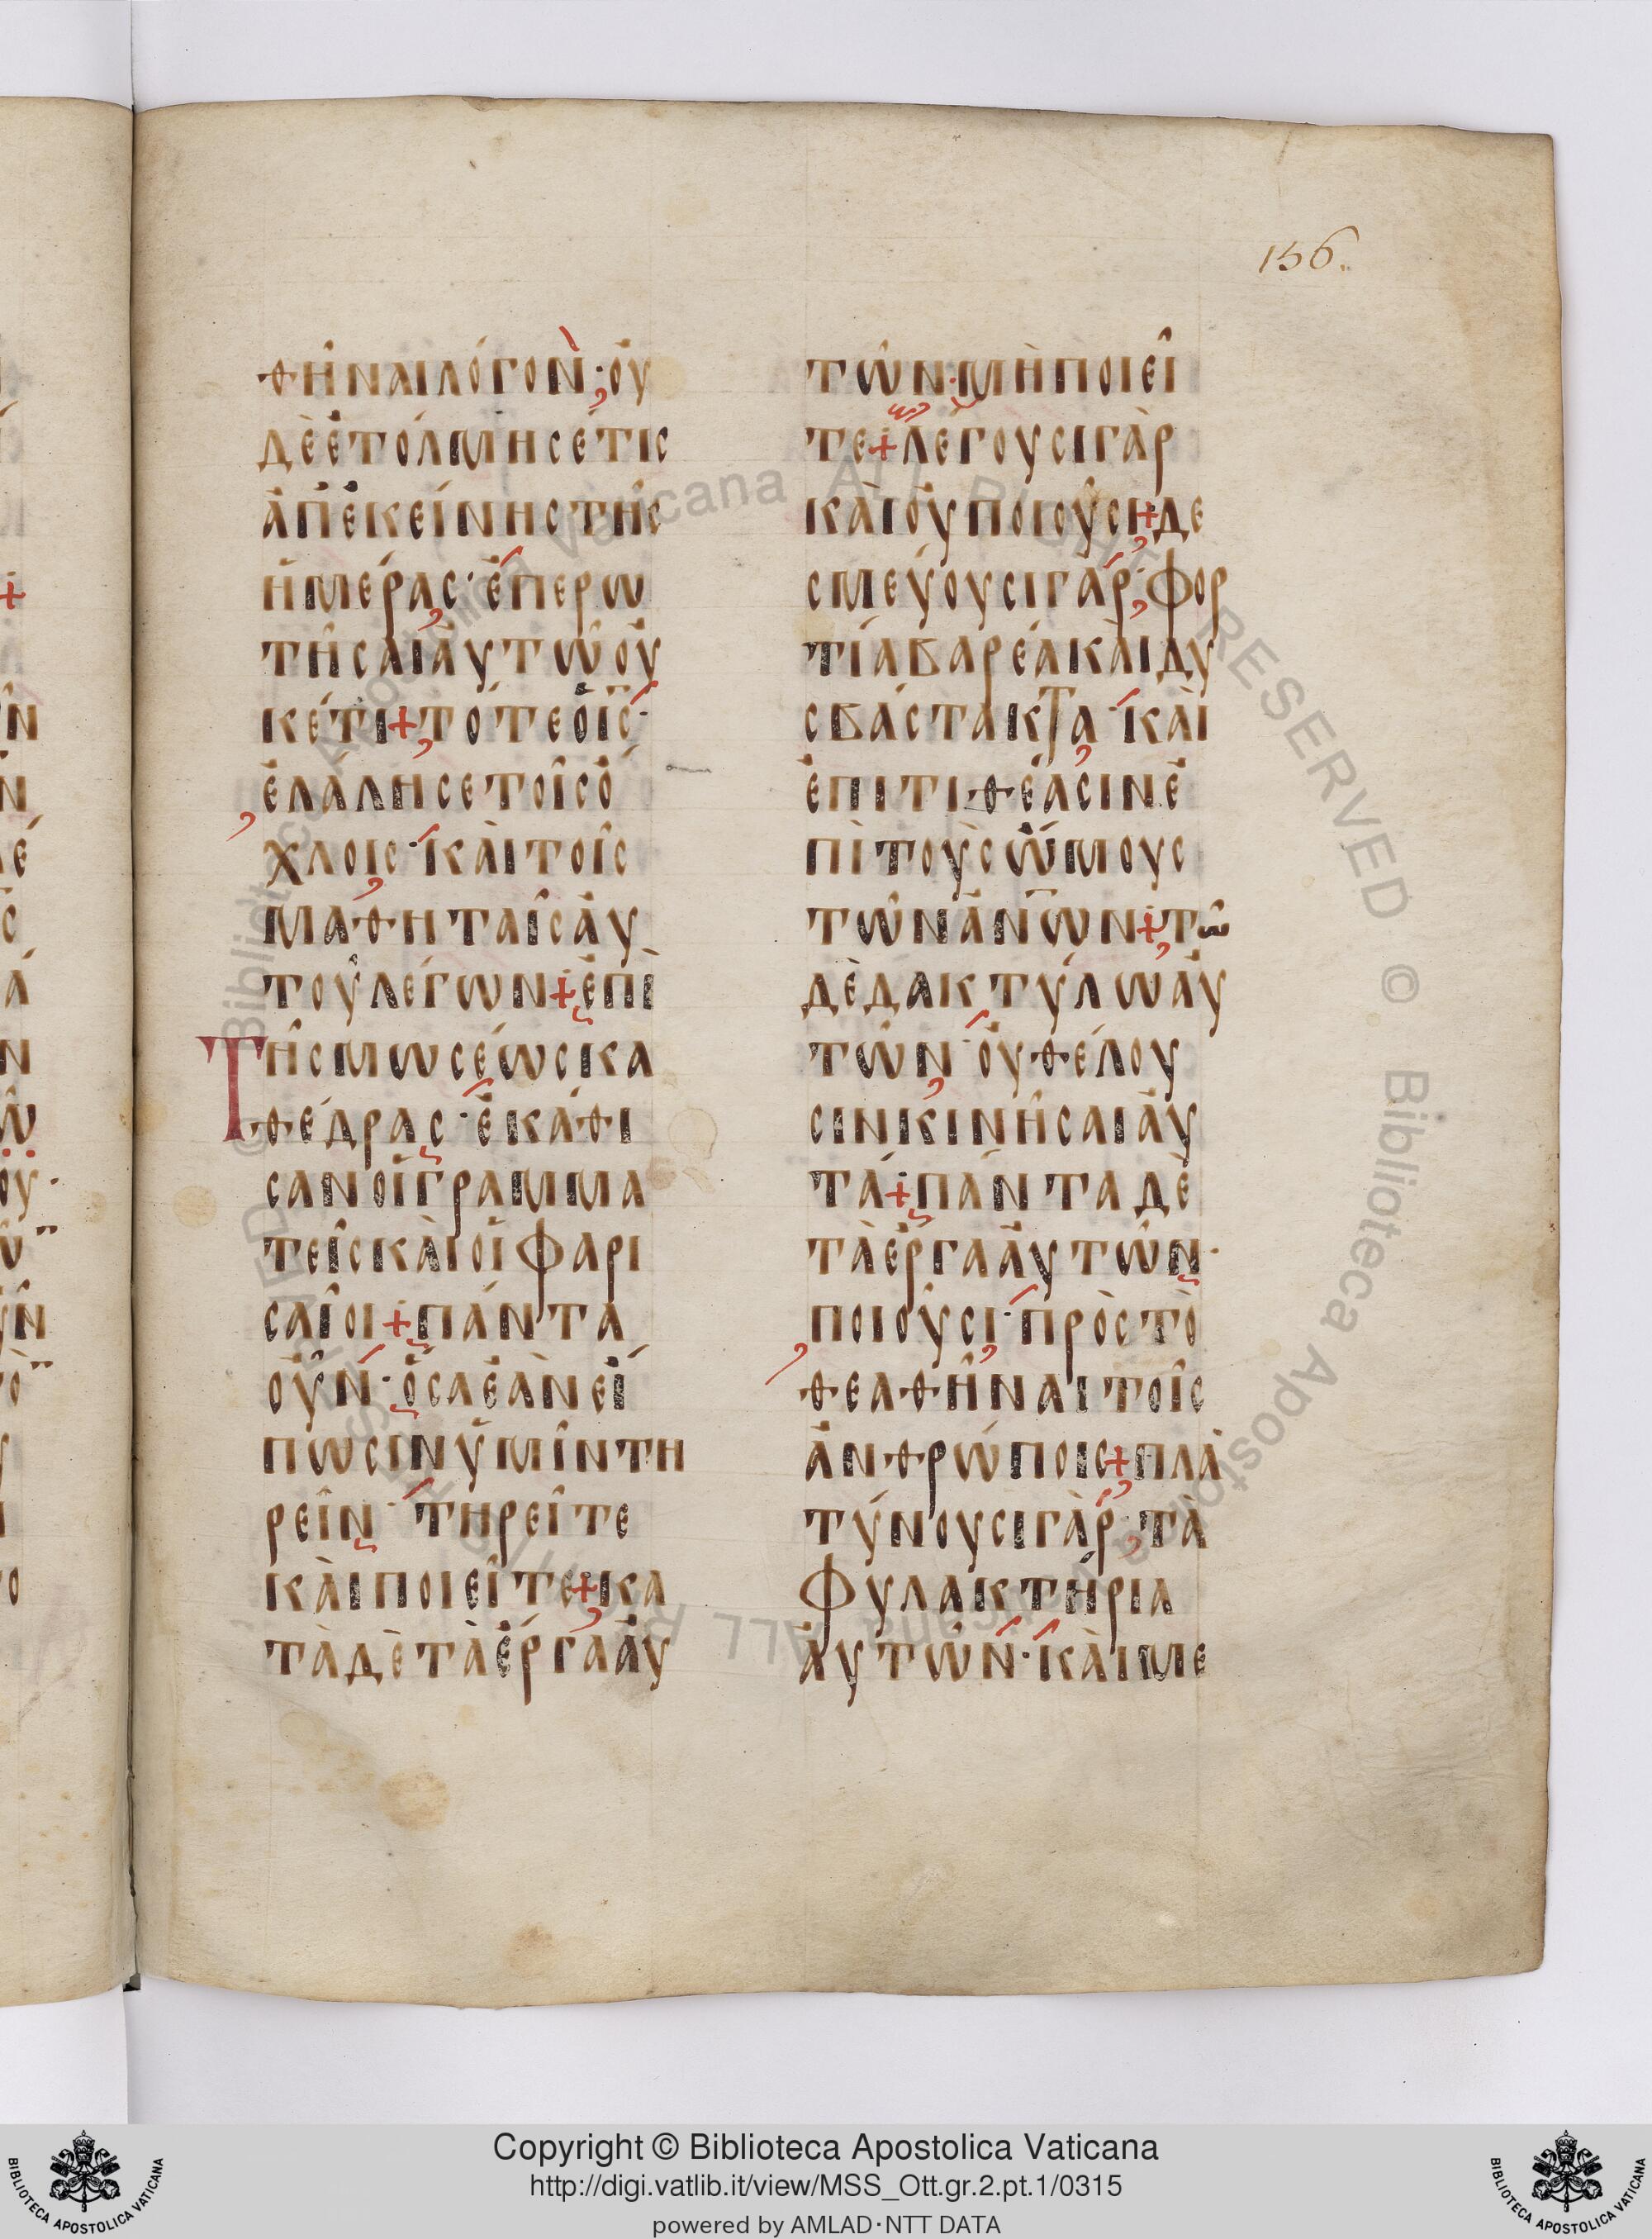 156.
θῆναι λόγον· οὐ
δὲ ἐτόλμησέ τις
ἀπ' ἐκείνης τῆς
ἡμέρας· ἐπερω
τῆσαι ἀυτῶ οὐ
κέτι + τότε ὁ ις·
ἐλάλησε τοῖς ὄ
χλοις· κὰι τοῖς
μαθηταῖς ἀυ
τοῦ λέγων + ἐπὶ
Τῆς μωσέως κα
θέδρας· ἐκάθι
σαν οἱ γραμμα
τεῖς κὰι οἱ φαρι
σαῖοι + πάντα
οὖν· ὅσα ἐὰν εἴ
πωσιν ὑμῖν τη
ρεῖν· τηρεῖτε
κὰι ποιεῖτε + κα
τὰ δὲ τὰ ἔργα ἀυ
τῶν· μὴ ποιεῖ
τε + λέγουσι γὰρ
κὰι οὐ ποιοῦσι + δε
σμεύουσι γὰρ· φορ
τία βαρέα κὰι δυ
σβάστακτα· κὰι
ἐπιτιθέασιν ἐ
πὶ τοὺς ὤμους
τῶν ἀνων + τῶ
δὲ δακτύλω ἀυ
τῶν· οὐ θέλου
σιν κινῆσαι ἀυ
τά + πάντα δὲ
τὰ ἔργα ἀυτῶν·
ποιοῦσι· πρὸς τὸ
θεαθῆναι τοῖς
ἀνθρώποις + πλα
τύνουσι γὰρ· τὰ
φυλακτήρια
ἀυτῶν· κὰι με
Copyright © Biblioteca Apostolica Vaticana
http://digi.vatlib.it/view/MSS_Ott.gr.2.pt.1/0315
powered by AMLAD·NTT DATA
BIBLIOTECA APOSTOLICA VATICANA
BIBLIOTECA APOSTOLICA VATICANA